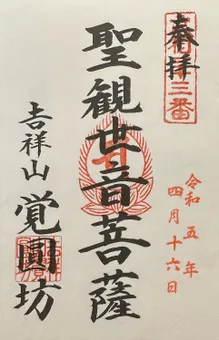 奉拝
三番
令和五年
四月十六日
聖観世音菩薩
吉祥山
覚圓坊